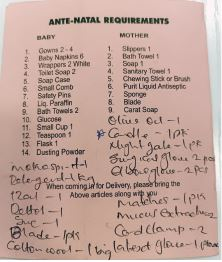 ANTE-NATAL REQUIREMENTS
BABY
1. Gowns 2 - 4
2. Baby Napkins 6
3. Wrappers 2 White
4. Toilet Soap 2
5. Soap Case
6. Small Comb
7. Safety Pins
8. Liq. Paraffin
9. Bath Towels 2
10. Glucose
11. Small Cup 1
12. Teaspoon 1
13. Flask 1
14. Dusting Powder
MOTHER
1. Slippers 1
2. Bath Towel 1
3. Soap 1
4. Sanitary Towel 1
5. Chewing Stick or Brush
6. Purit Liquid Antiseptic
7. Sponge
8. Blade
9. Carat Soap
Olive oil - 1
Candle - 1pk
Night gale - 1pk
Surgical glove 2pcs
glove - 2pcs
When coming in for Delivery, please bring the
Above articles along with you
Matches - 1pk
Mucus Extractor 2
Cord clamp - 2
latex glove - 1
Blade - 1pk
Cotton wool - 1 big